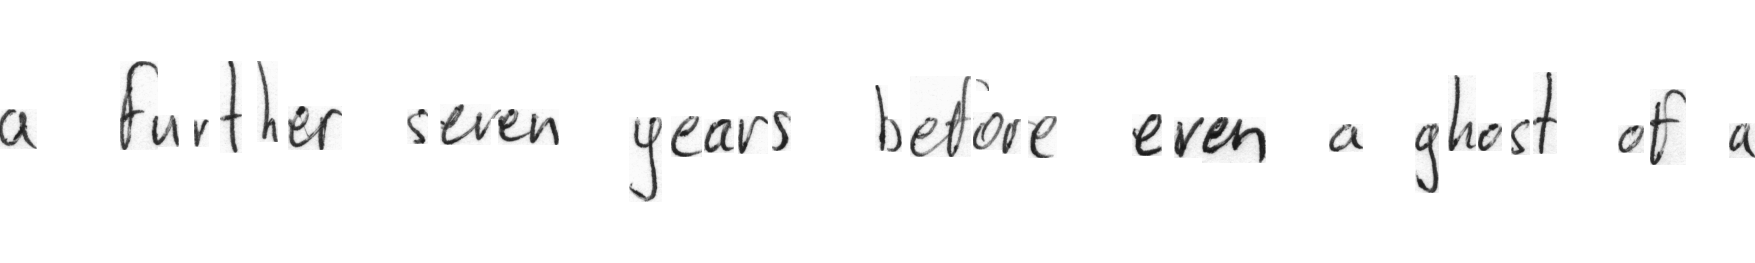 a further seven years before even a ghost of a